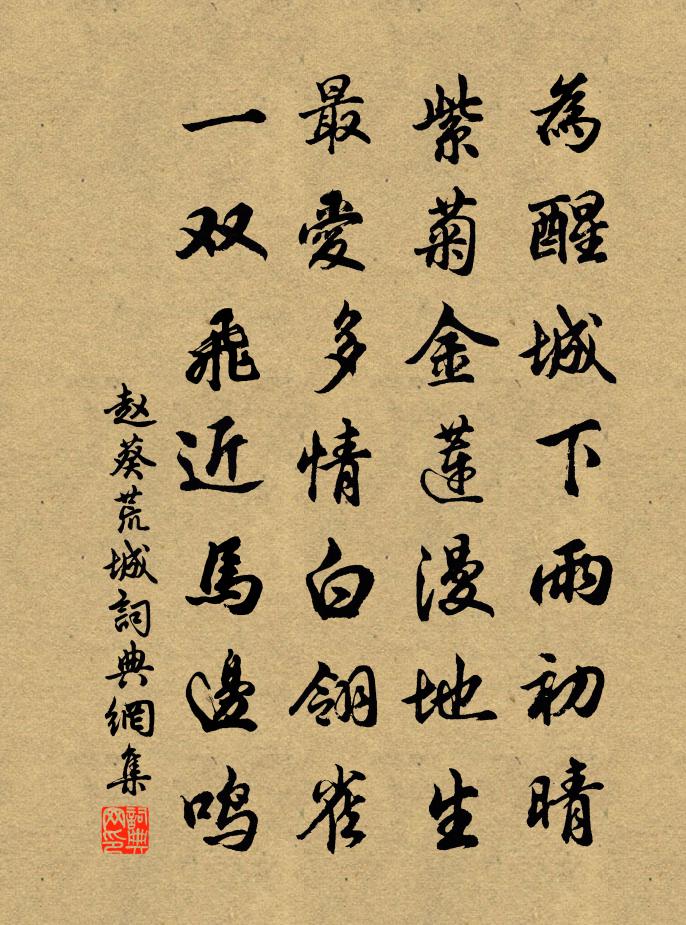 為醒城下雨初晴
紫菊金蓮漫地生
最愛多情白翎雀
一双飛近馬邊鸣
赵葵荒城詞典網集
詞典网印